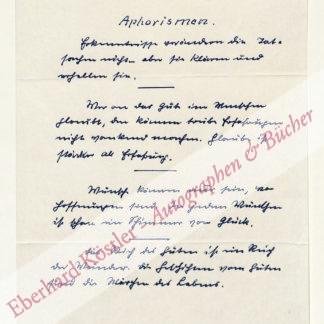 Aphorismen.
Erkenntnisse verändern die Tat-
sachen nicht - aber sie klären und
erhellen sie.
Wer an das Gute im Menschen
glaubt, den können trübe Erfahrungen
nicht wankend machen. Glaube ist
stärker als Erfahrung.
Wünsche können sein, wo
Hoffnungen sind jedem Wünschen
ist schon ein Schimmer von Glück.
Das Reich des Guten ist ein Reich
der Wunder. Die Geschichten vom Guten
sind die Märchen des Lebens.
Eberhard Köstler - Autographen & Bücher